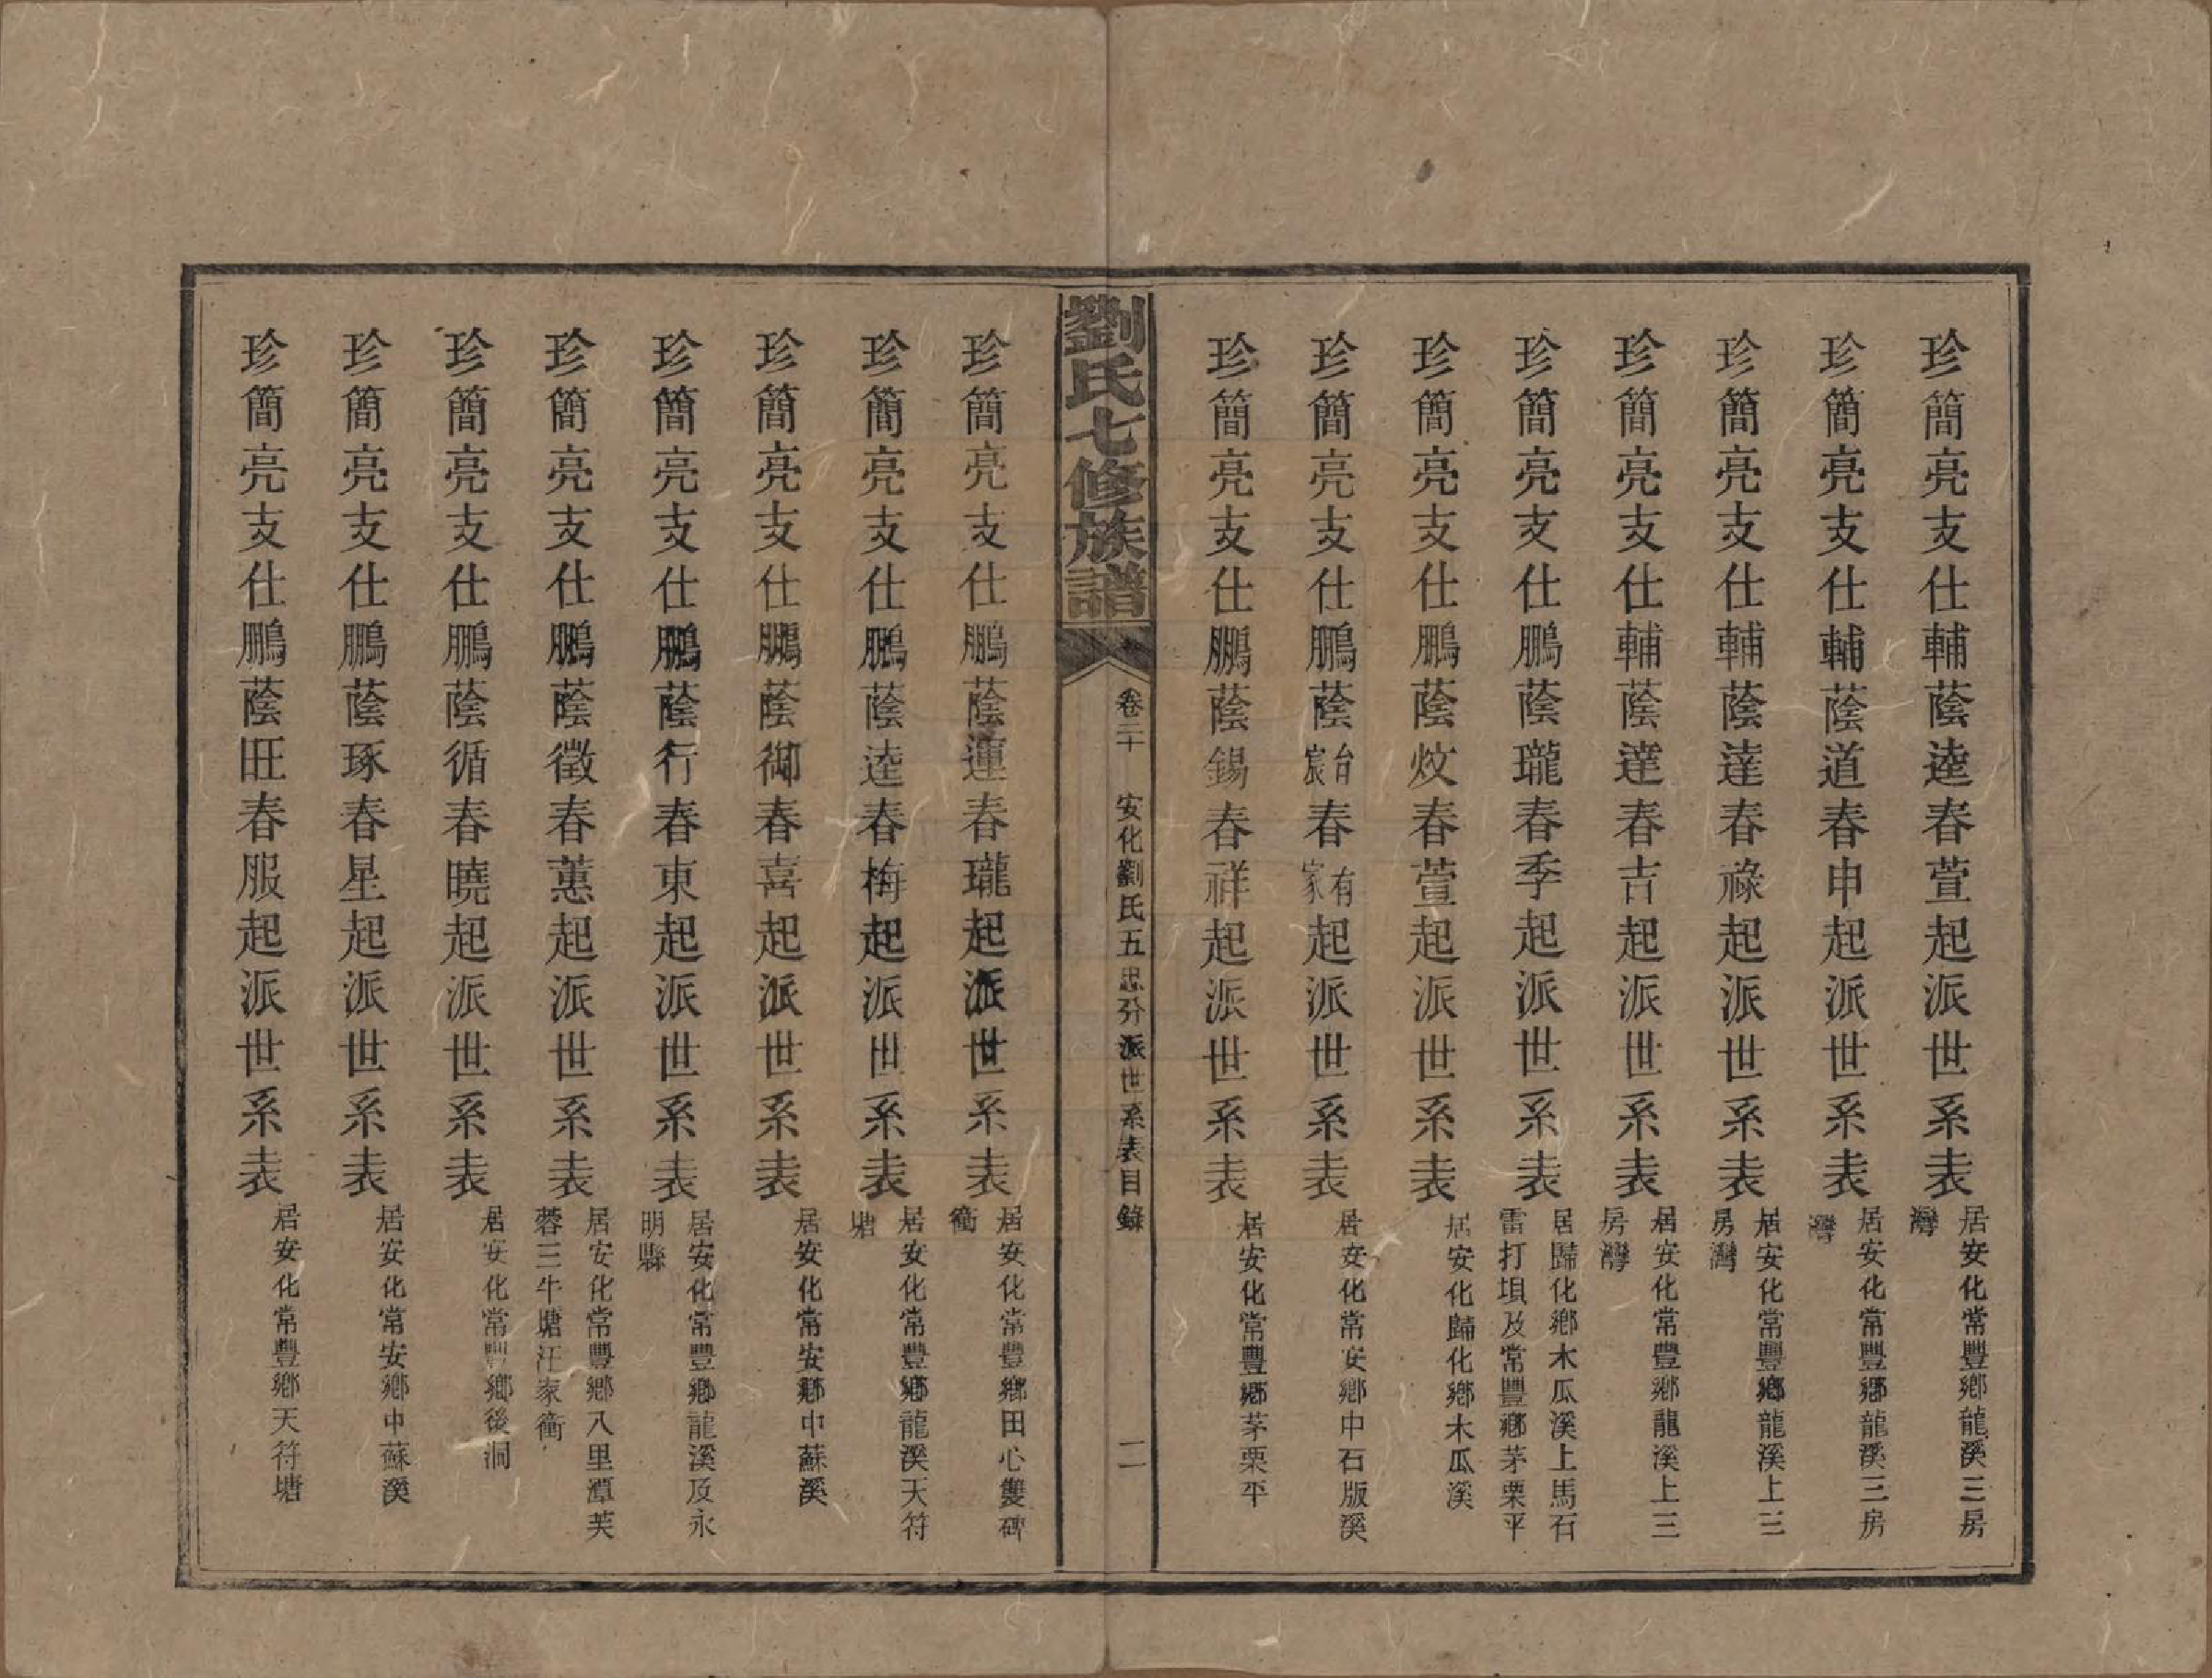 珍簡亮支仕輔蔭逵春萱起派世系表 居安化常豐鄉龍溪三房灣
珍簡亮支仕輔蔭道春申起派世系表 居安化常豐鄉龍溪三房灣
珍簡亮支仕輔蔭達春祿起派世系表 居安化常豐鄉龍溪上三房灣
珍簡亮支仕輔蔭達春吉起派世系表 居安化常豐鄉龍溪上三房灣
珍簡亮支仕鵬蔭瓏春季起派世系表 居歸化鄉木瓜溪上馬石雷打垻及常豐鄉茅栗平
珍簡亮支仕鵬蔭炆春萱起派世系表 居安化歸化鄉木瓜溪
珍簡亮支仕鵬蔭台宸春有家起派世系表 居安化常安鄉中石版溪
珍簡亮支仕鵬蔭錫春祥起派世系表 居安化常豐鄉茅栗平
劉氏七修族譜 卷三十 安化劉氏五忠分派世系表目錄 二
珍簡亮支仕鵬蔭運春瓏起派世系表 居安化常豐鄉田心雙碑衝
珍簡亮支仕鵬蔭逵春梅起派世系表 居安化常豐鄉龍溪天符塘
珍簡亮支仕鵬蔭御春喜起派世系表 居安化常安鄉中蘇溪
珍簡亮支仕鵬蔭行春東起派世系表 居安化常豐鄉龍溪及永明縣
珍簡亮支仕鵬蔭徵春蕙起派世系表 居安化常豐鄉八里潭芙蓉三牛塘汪家衝
珍簡亮支仕鵬蔭循春曉起派世系表 居安化常豐鄉後洞
珍簡亮支仕鵬蔭琢春星起派世系表 居安化常安鄉中蘇溪
珍簡亮支仕鵬蔭旺春服起派世系表 居安化常豐鄉天符塘